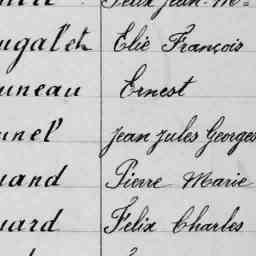 Felix Jean-M=
ugalet Elie François
uneau Ernest
unel Jean Jules Georges
uand Pierre Marie
uard Felix Charles